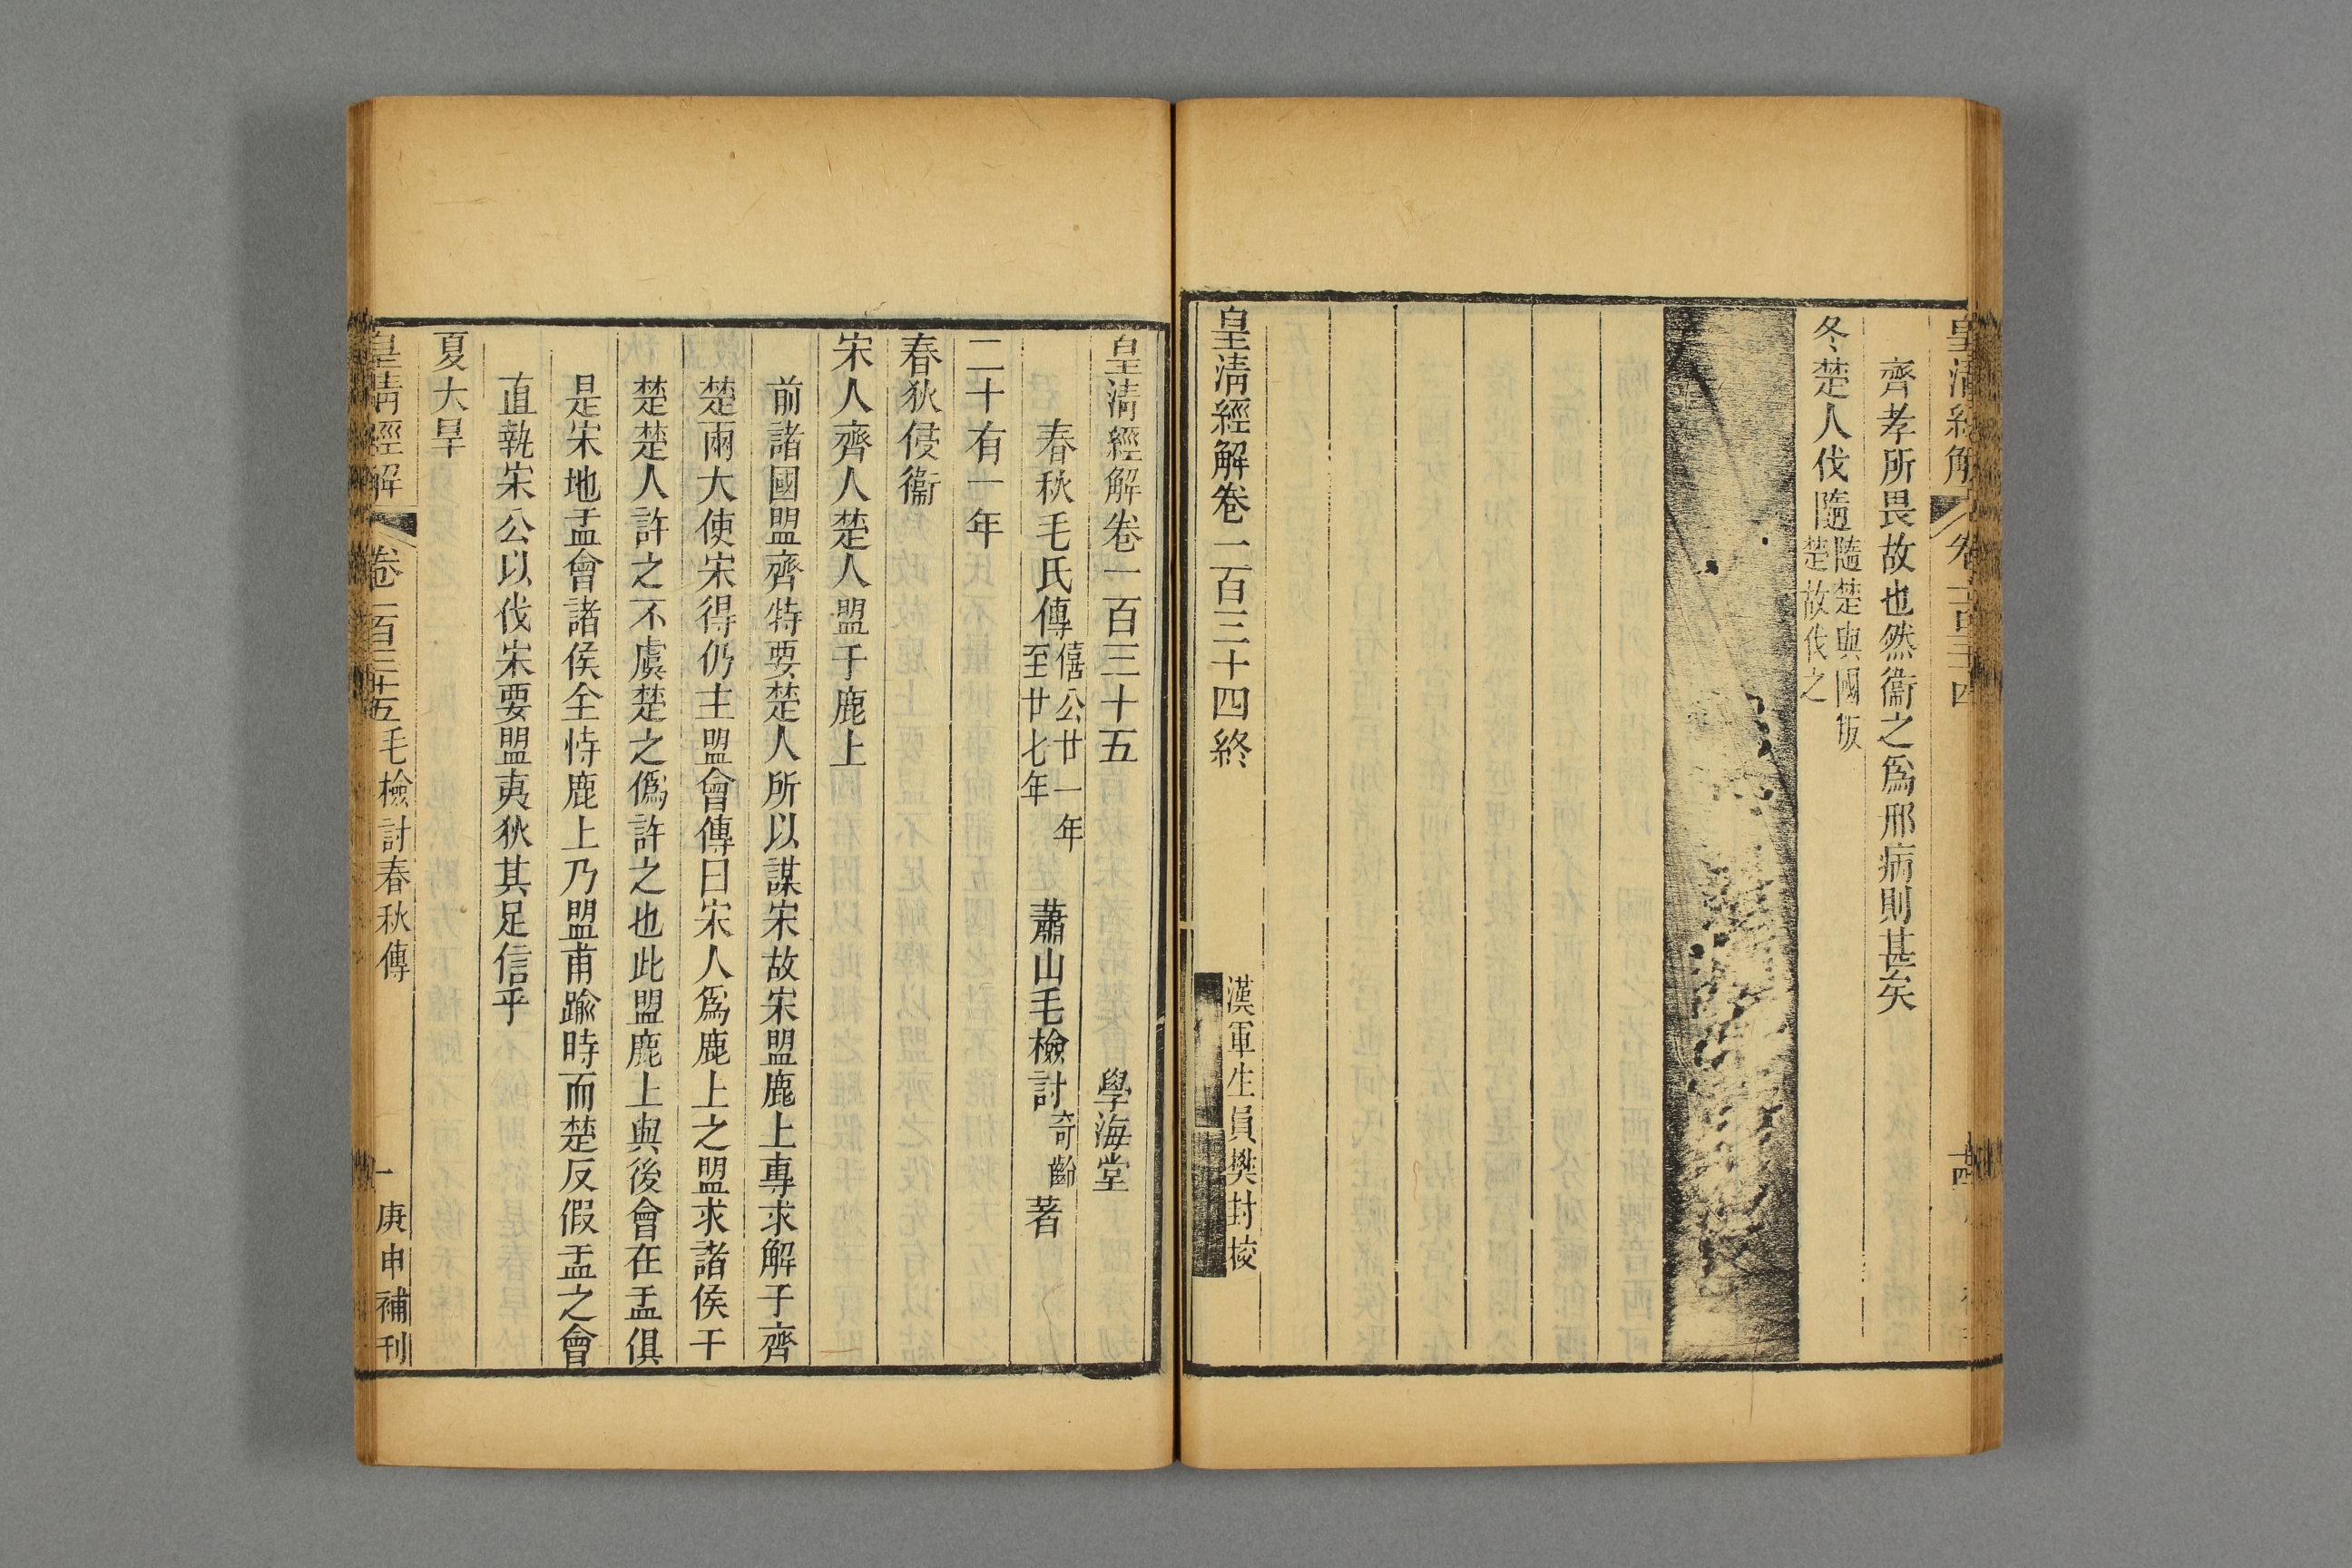 皇清經解 卷一百三十四 十四
齊孝所畏故也然衞之爲邢病則甚矣
冬楚人伐隨隨楚與國叛楚故伐之
皇清經解卷一百三十四終
漢軍生員樊封挍
皇清經解卷一百三十五 學海堂
春秋毛氏傳僖公廿一年至廿七年 蕭山毛檢討奇齡著
二十有一年
春狄侵衞
宋人齊人楚人盟于鹿上
前諸國盟齊特要楚人所以謀宋故宋盟鹿上專求解于齊
楚兩大使宋得仍主盟會傳曰宋人爲鹿上之盟求諸侯于
楚楚人許之不虞楚之僞許之也此盟鹿上與後會在盂俱
是宋地盂會諸侯全恃鹿上乃盟甫踰時而楚反假盂之會
直執宋公以伐宋要盟夷狄其足信乎
夏大旱
皇清經解 卷一百三十五毛檢討春秋傳 一 庚申補刊